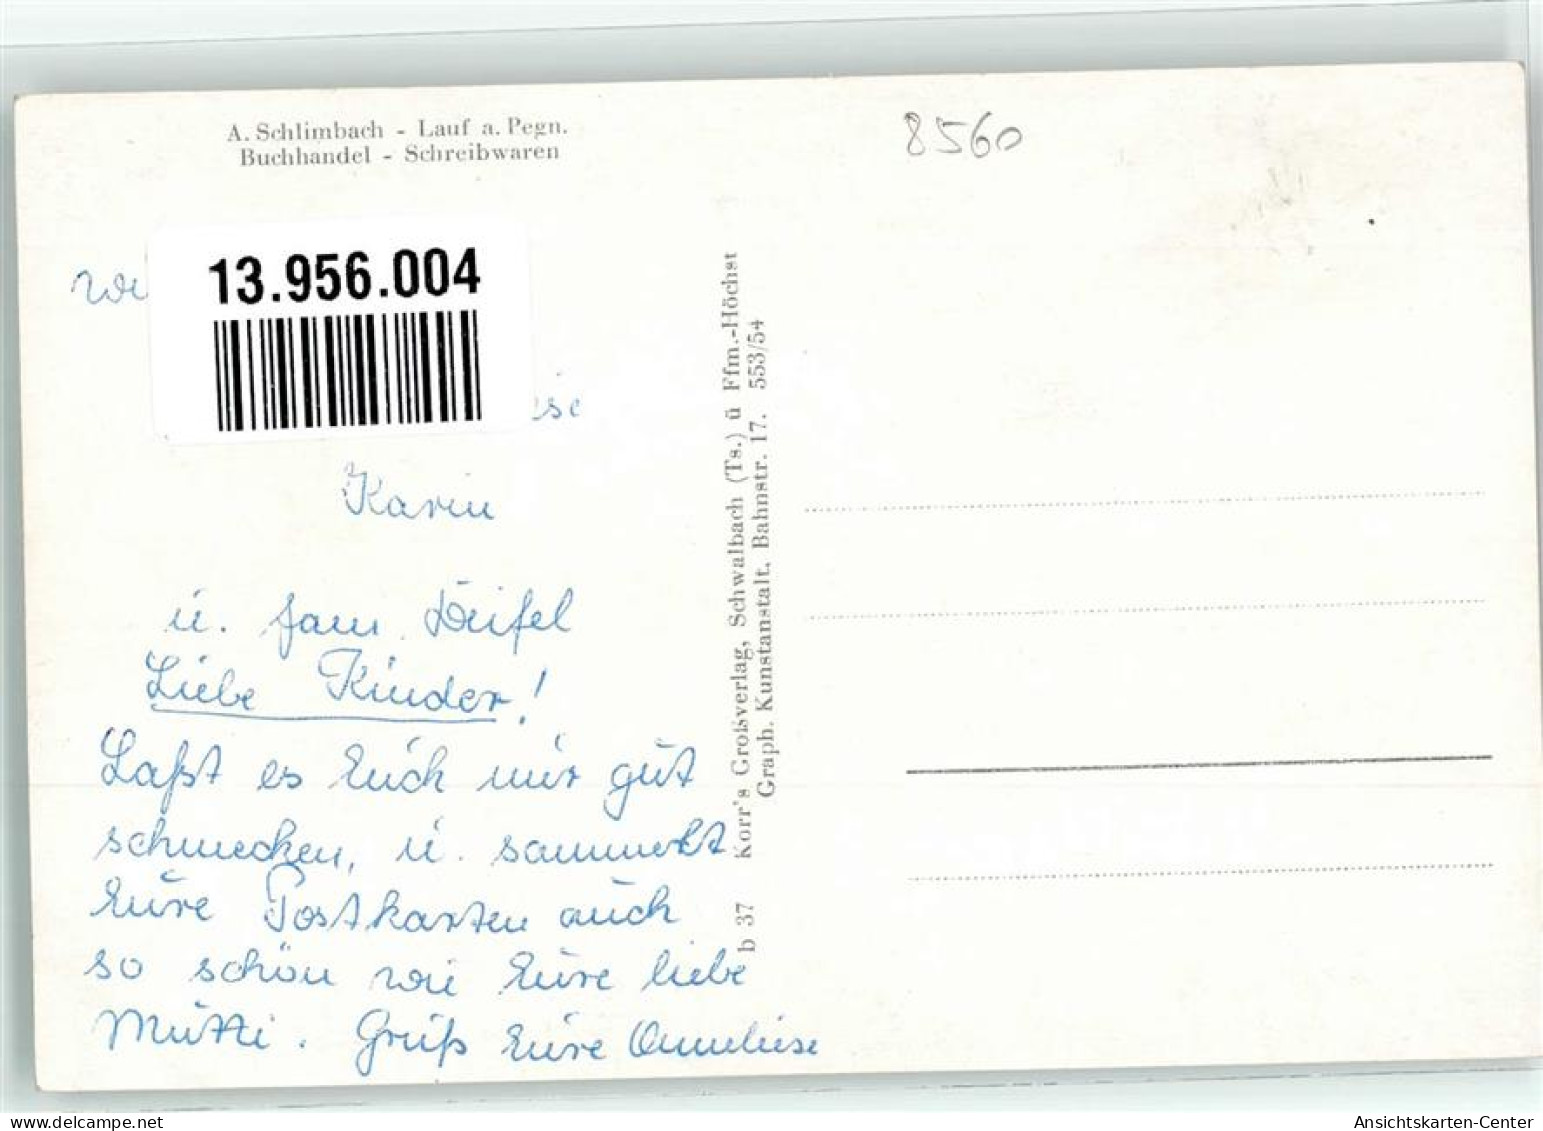 A. Schlimbach - Lauf a. Pegn.
Buchhandel - Schreibwaren
8560
13.956.004
Karin
ü. Fam. Deifel
Liebe Kinder!
Laßt es Euch nur gut
schmecken, ü. sammelt
Eure Postkarten auch
so schön wie Eure liebe
Mutti. Gruß Eure Anneliese
b 37 Korr's Großverlag, Schwalbach (Ts.) ü Ffm.-Höchst
Graph. Kunstanstalt. Bahnstr. 17. 553/54
delcampe.net
Ansichtskarten-Center